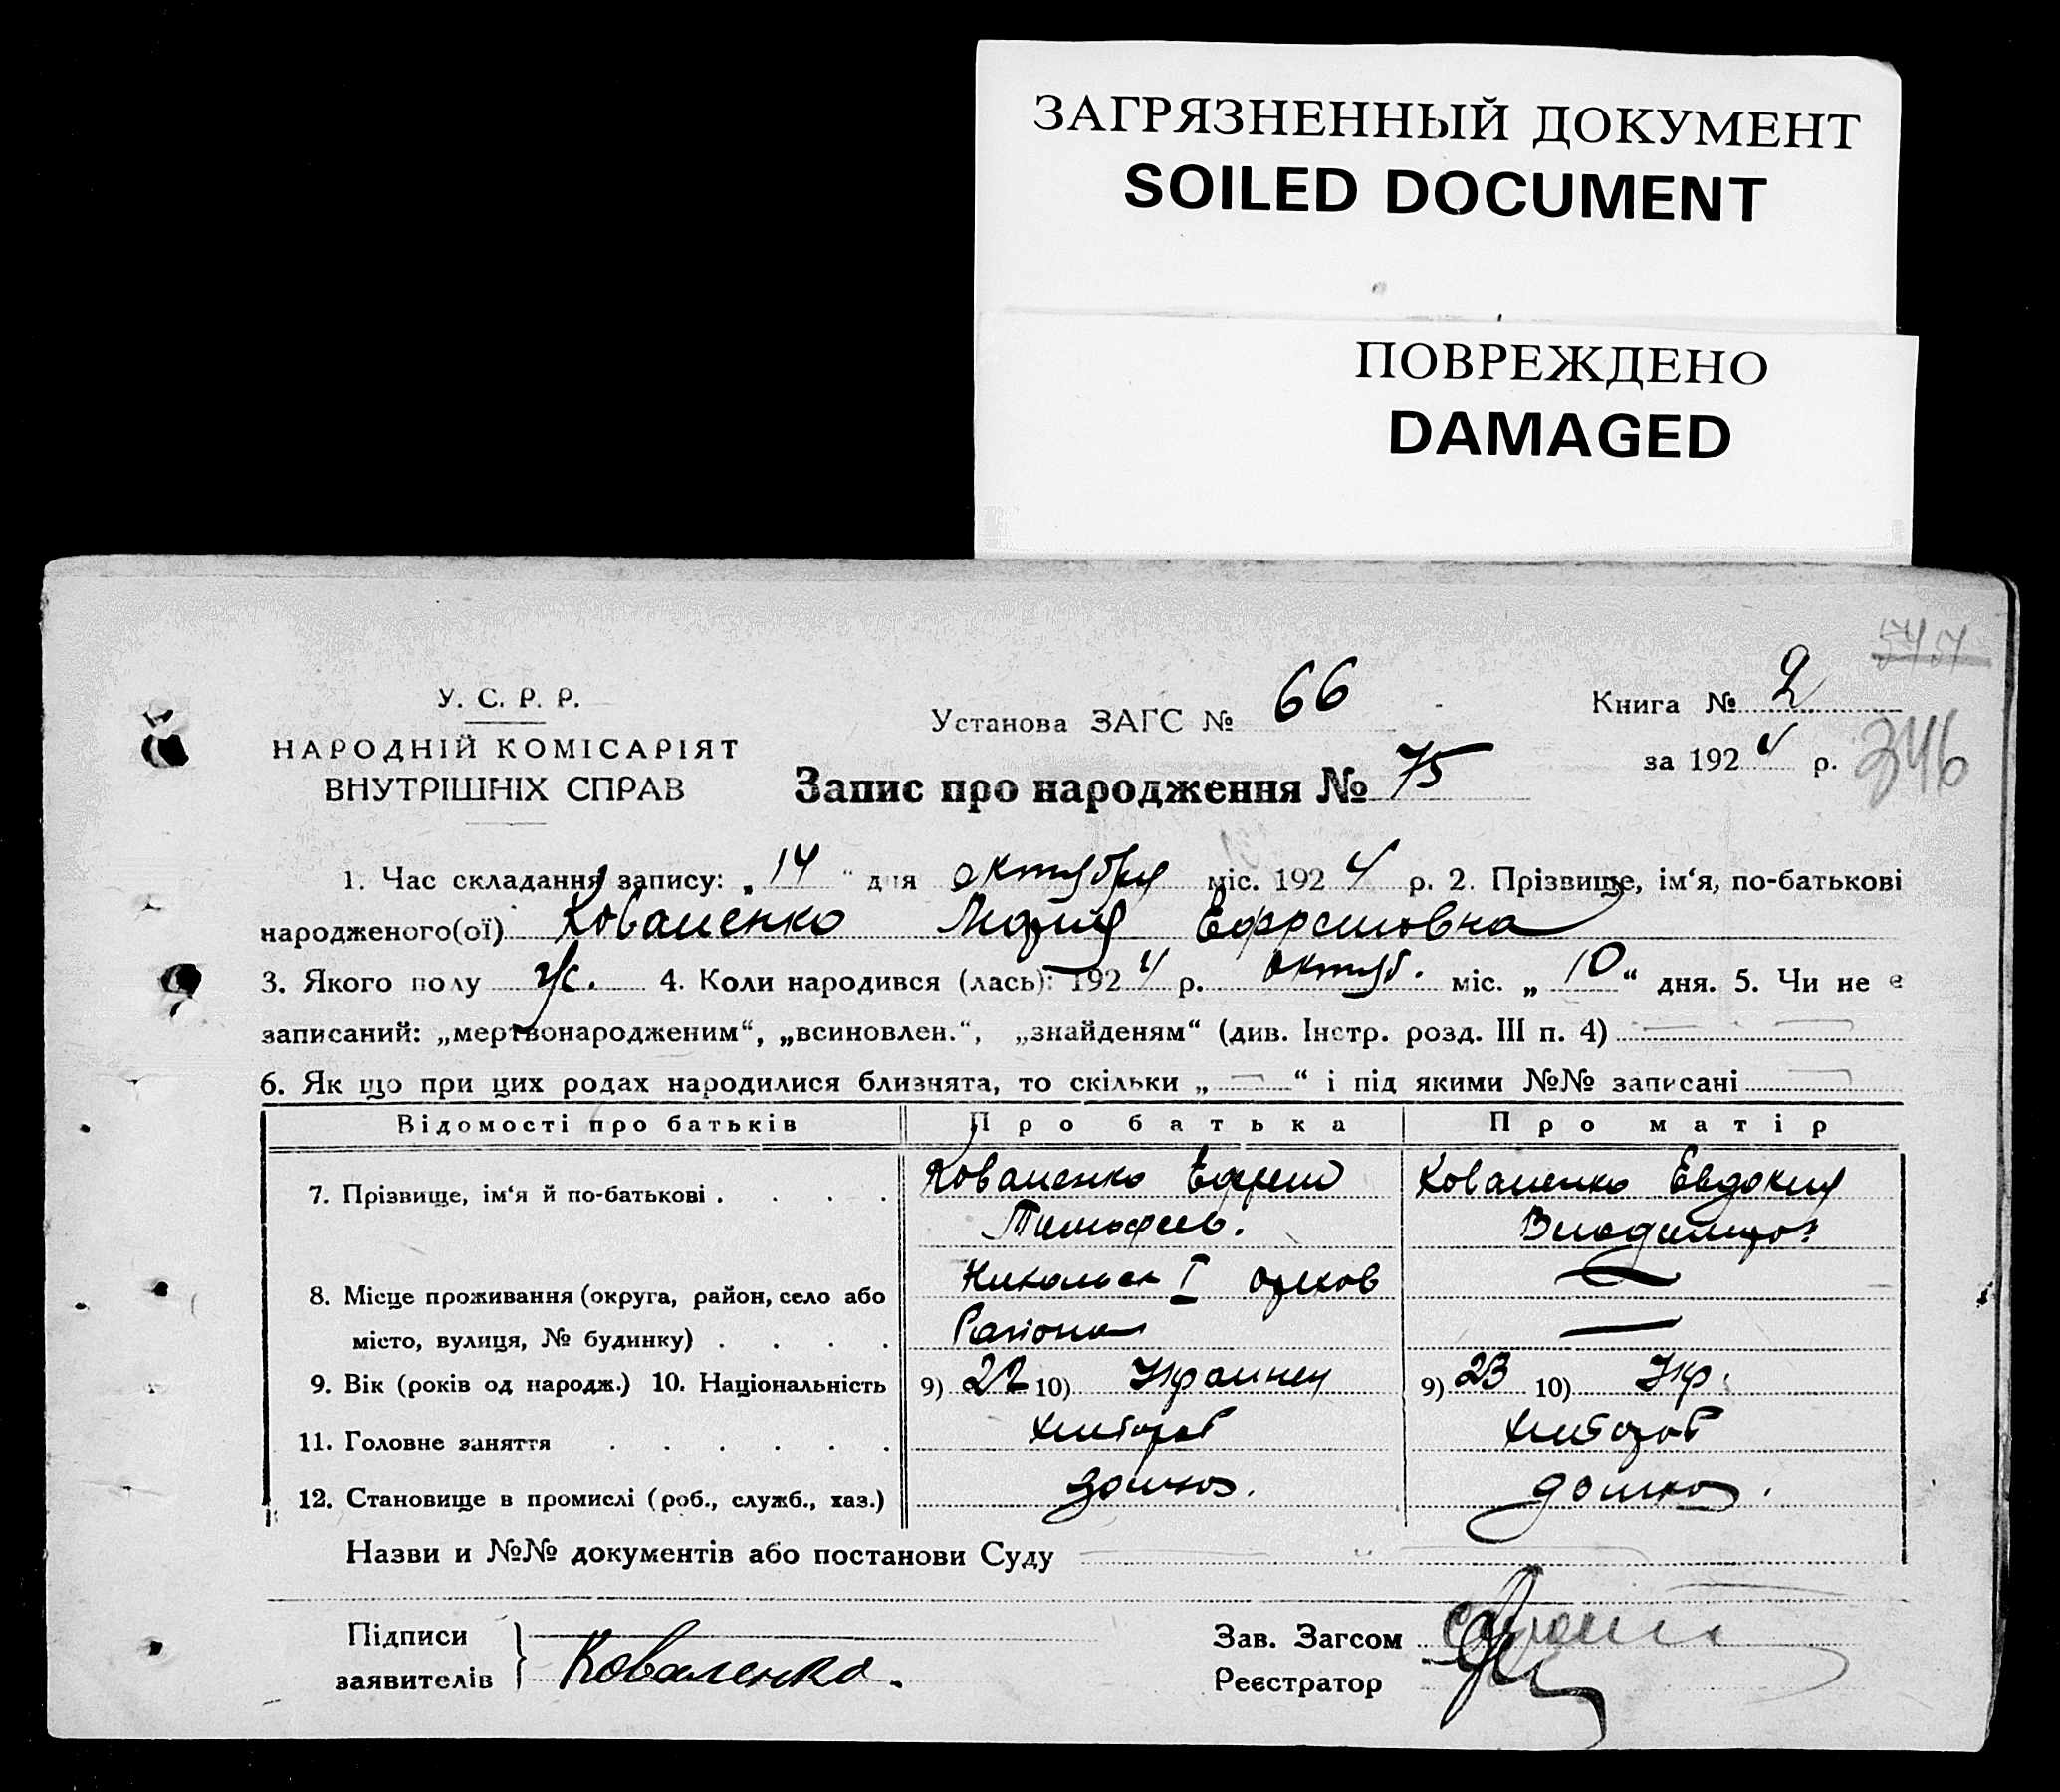 ЗАГРЯЗНЕННЫЙ ДОКУМЕНТ
SOILED DOCUMENT
ПОВРЕЖДЕНО
DAMAGED
У. С. Р. Р.
НАРОДНІЙ КОМІСАРІЯТ
ВНУТРІШНІХ СПРАВ
Установа ЗАГС № 66
Книга № 2
за 1924 р.
346
Запис про народження № 75
1. Час складання запису: „14“ дня октября міс. 1924 р. 2. Прізвище, ім‘я, по-батькові
народженого(ої) Коваленко Мария Ефремовна
3. Якого полу ж. 4. Коли народився (лась): 1924 р. октяб. міс. „10“ дня. 5. Чи не є
записаний: „мертвонародженим“, „всиновлен.“, „знайденям“ (див. Інстр. розд. III п. 4)
6. Як що при цих родах народилися близнята, то скільки „—“ і під якими №№ записані
Відомості про батьків Про батька Про матір
7. Прізвище, ім‘я й по-батькові . . . . Коваленко Ефрем Коваленко Евдокия
Тимофеев. Владимиров.
8. Місце проживання (округа, район, село або Николаев I Орехов
місто, вулиця, № будинку) . . . . Района —
9. Вік (років од народж.) 10. Національність 9) 22 10) Украинец 9) 23 10) Укр.
11. Головне заняття . . . . . . Хлебороб Хлебороб
12. Становище в промислі (роб., служб., хаз.)
Назви и №№ документів або постанови Суду
Підписи
заявителів } Коваленко.
Зав. Загсом
Реєстратор